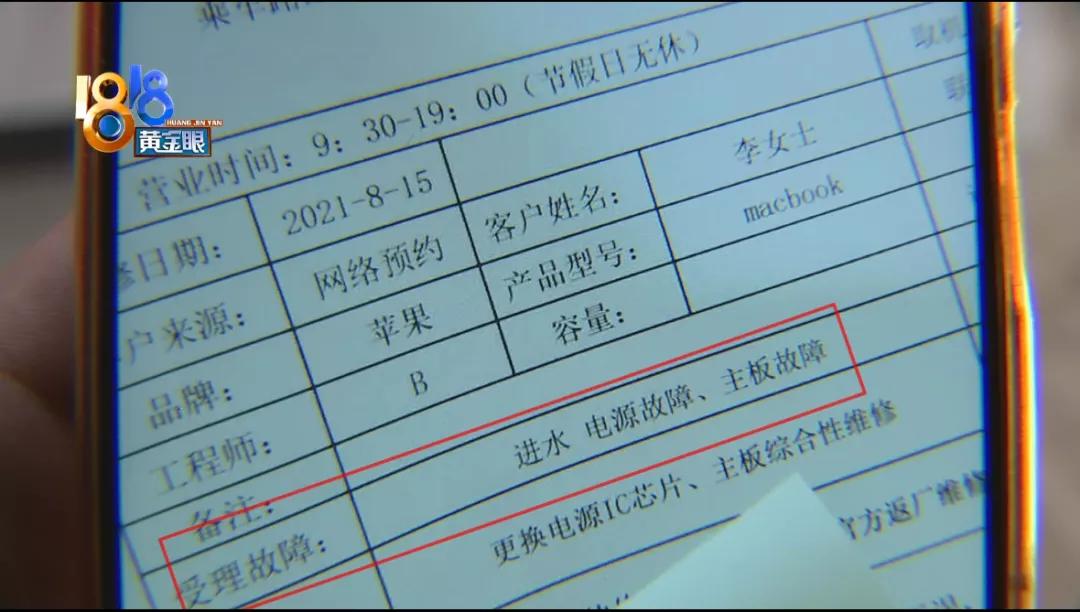 1818
HUANG JIN YAN
黄金眼
营业时间:9:30-19:00(节假日无休)
取机
修日期: 2021-8-15 客户姓名: 李女士
户来源: 网络预约 产品型号: macbook
品牌: 苹果 容量:
工程师: B
备注:
受理故障: 进水 电源故障、主板故障
更换电源IC芯片、主板综合性维修
官方返厂维修